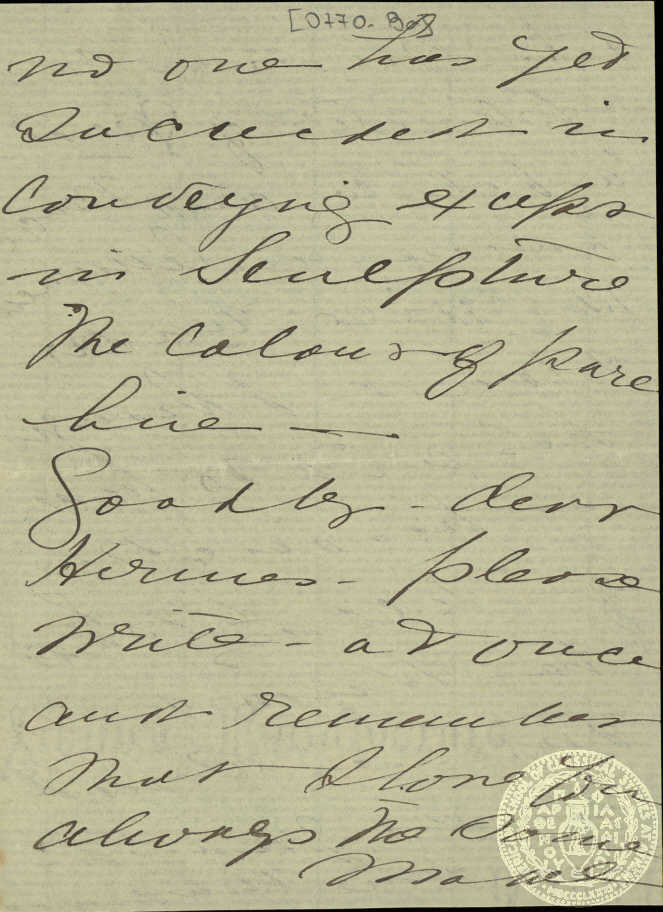 no one has yet
succeeded in
conveying except
in Sculpture
the colour of pure
line —
Goodby - dear
Hermes - please
write - at once
and remember
that I love you
always the same